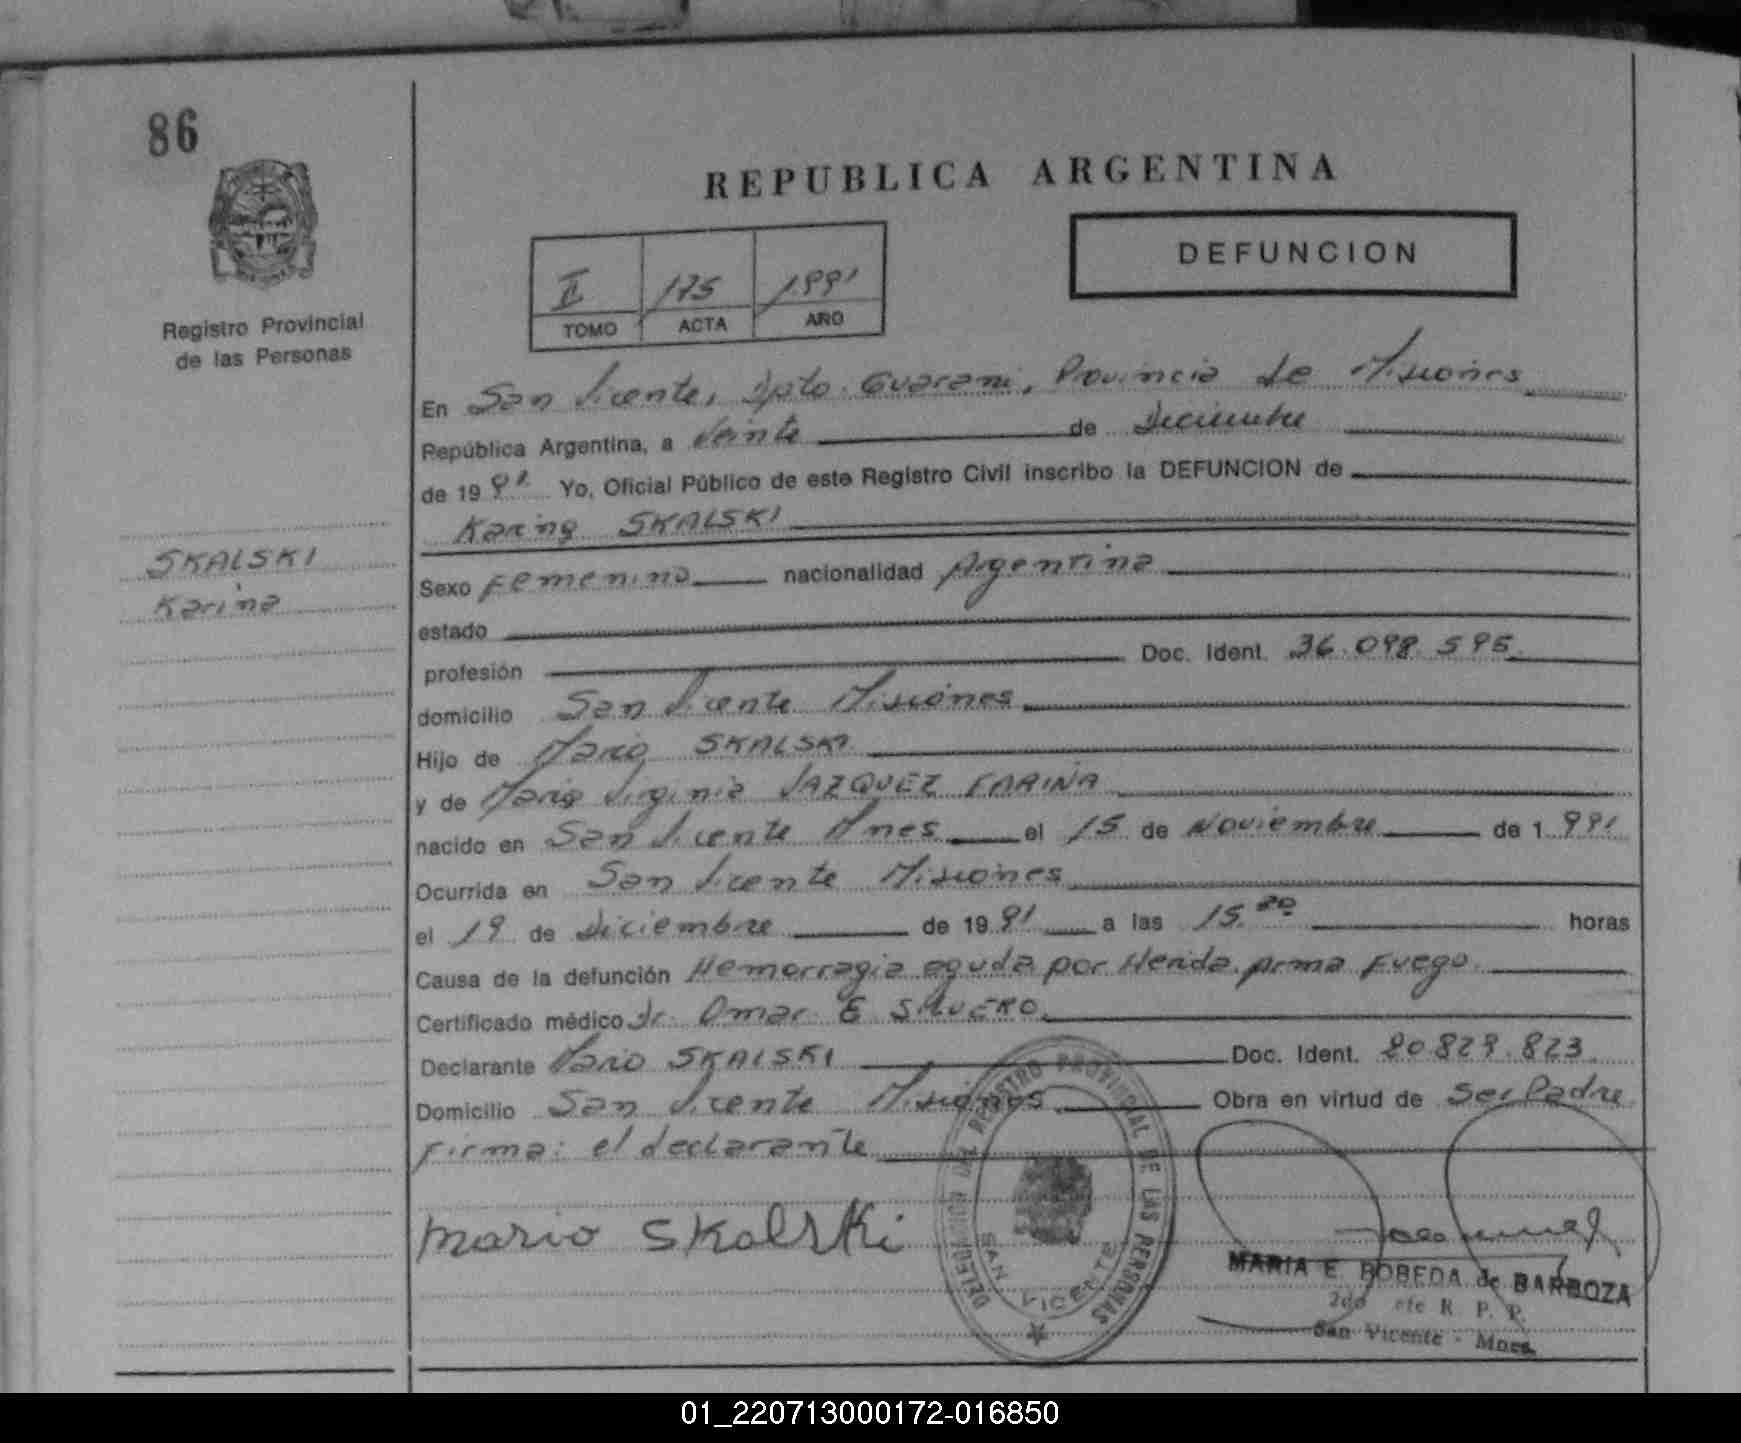 86
REPUBLICA ARGENTINA
DEFUNCION
II 175 1991
TOMO ACTA AÑO
Registro Provincial
de las Personas
En San Vicente, Dpto. Guarani, Provincia de Misiones
República Argentina, a Veinte de Diciembre
de 1991 Yo, Oficial Público de este Registro Civil inscribo la DEFUNCION de
Karina SKALSKI
SKALSKI
Karina
Sexo Femenino nacionalidad Argentina
estado
profesión Doc. Ident. 36.098.595
domicilio San Vicente Misiones
Hijo de Mario SKALSKI
y de Maria Virginia VAZQUEZ FARIÑA
nacido en San Vicente Mnes el 15 de Noviembre de 1991
Ocurrida en San Vicente Misiones
el 19 de Diciembre de 1991 a las 15. horas
Causa de la defunción Hemorragia aguda por Herida arma Fuego
Certificado médico Dr. Omar E SILVERO
Declarante Mario SKALSKI Doc. Ident. 20.829.823
Domicilio San Vicente Misiones Obra en virtud de Ser Padre
Firma: el declarante
Mario Skalski
DELEGACION DEL REGISTRO PROVINCIAL DE LAS PERSONAS
SAN VICENTE
MARIA E. BOBEDA de BARBOZA
2do R. P. P.
San Vicente - Mnes.
01_220713000172-016850